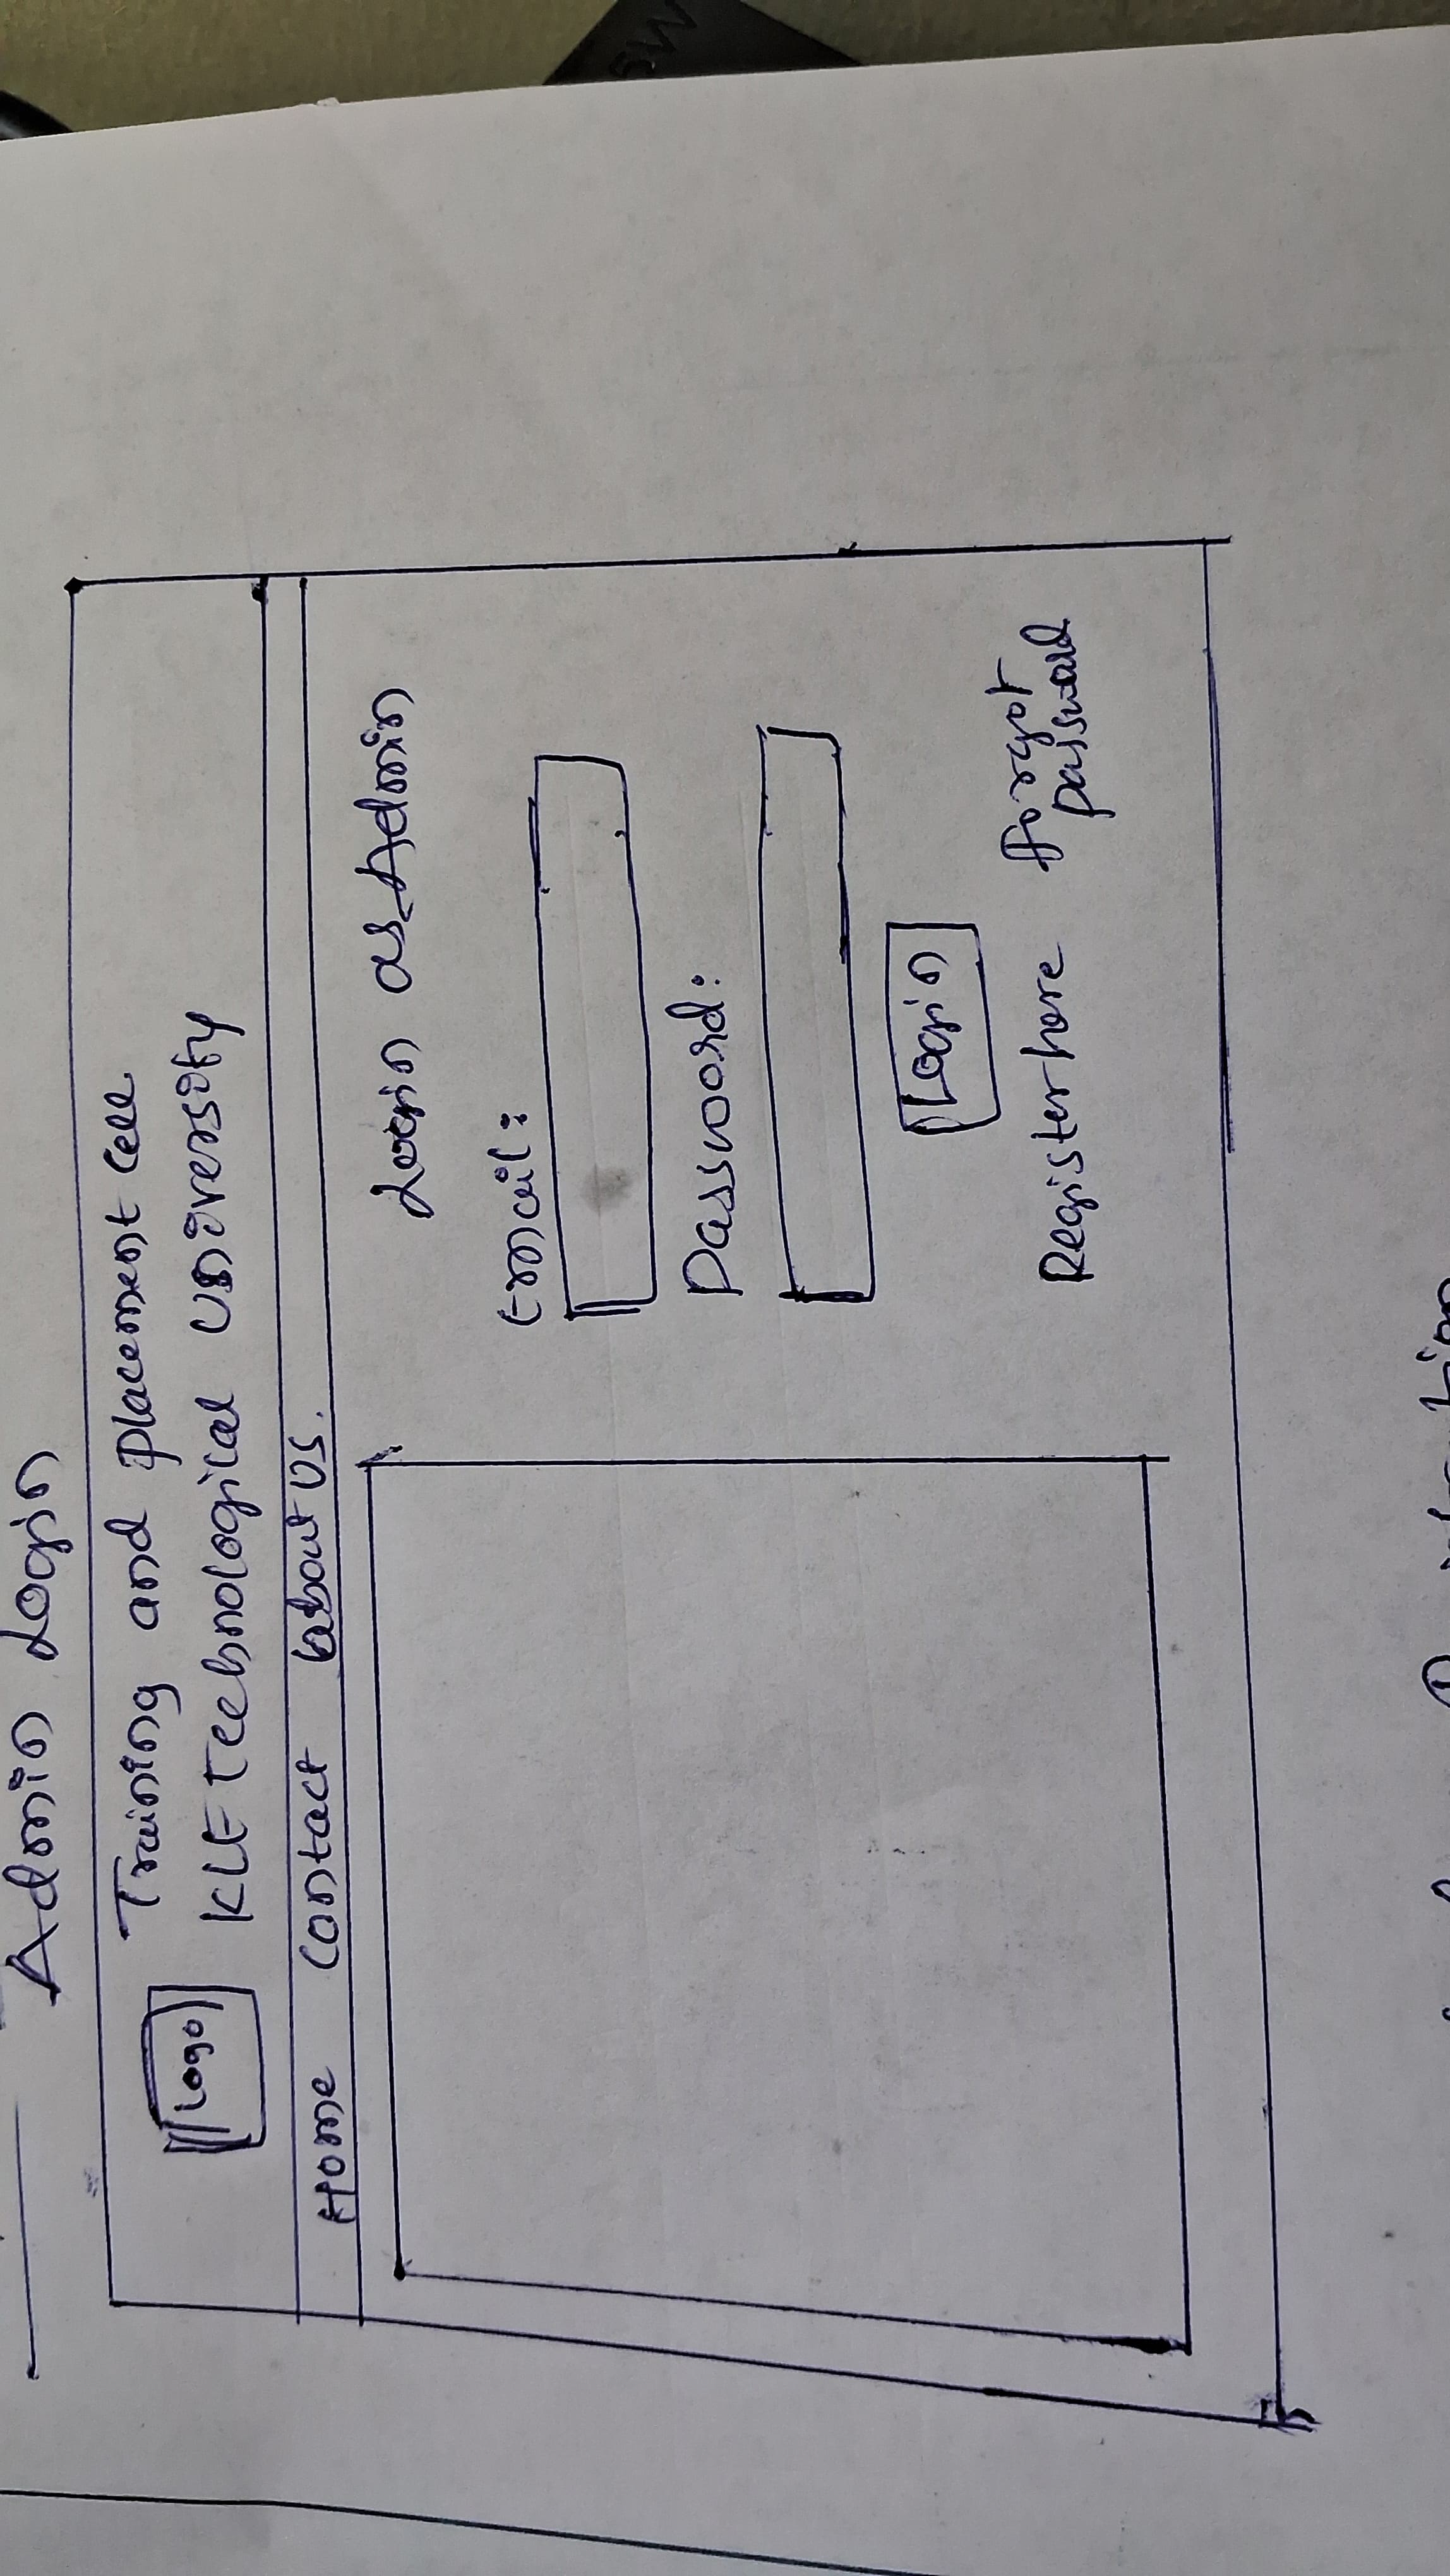 Admin Login
Training and placement cell
Logo
KLE Technological University
Home Contact about Us.
Login as Admin
Email:
Password:
Login
Register here forgot
password